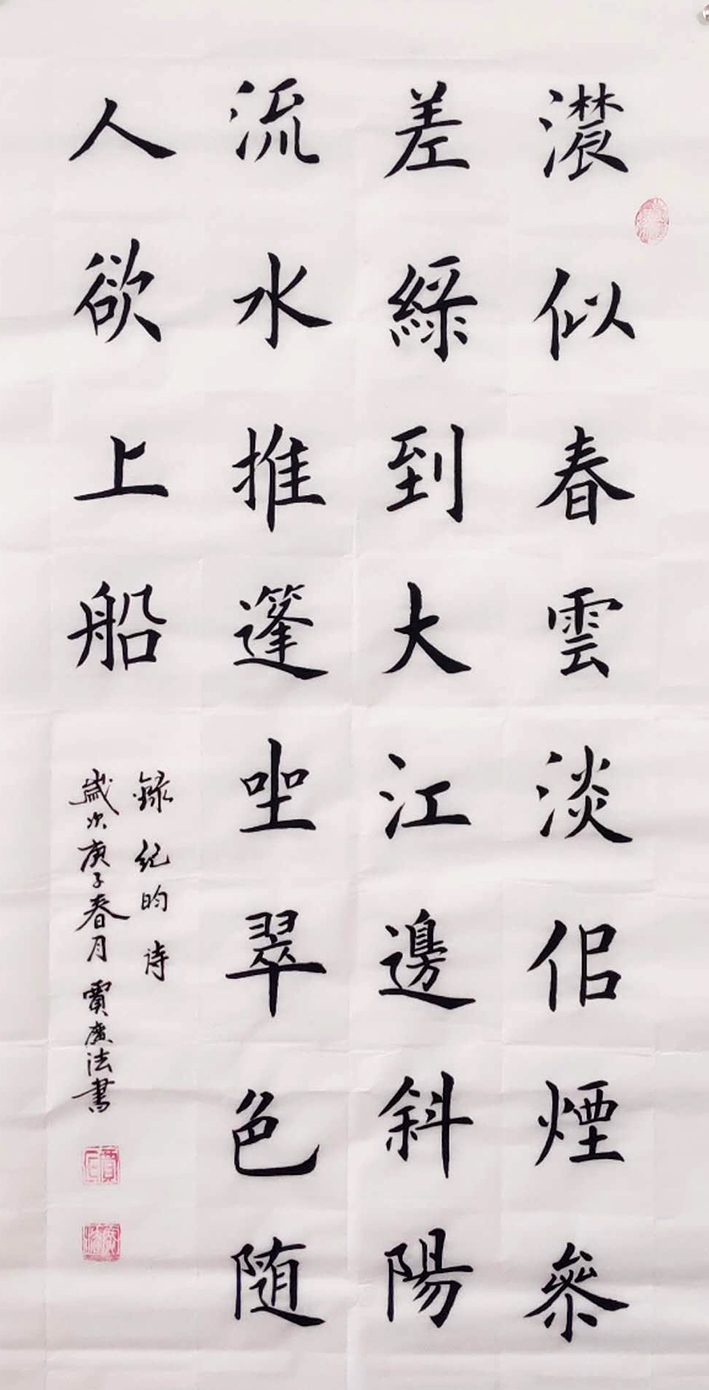 濃似春雲淡侣煙參
差綠到大江邊斜陽
流水推篷坐翠色随
人欲上船
錄紀昀詩
歲次庚子春月賈庆法書